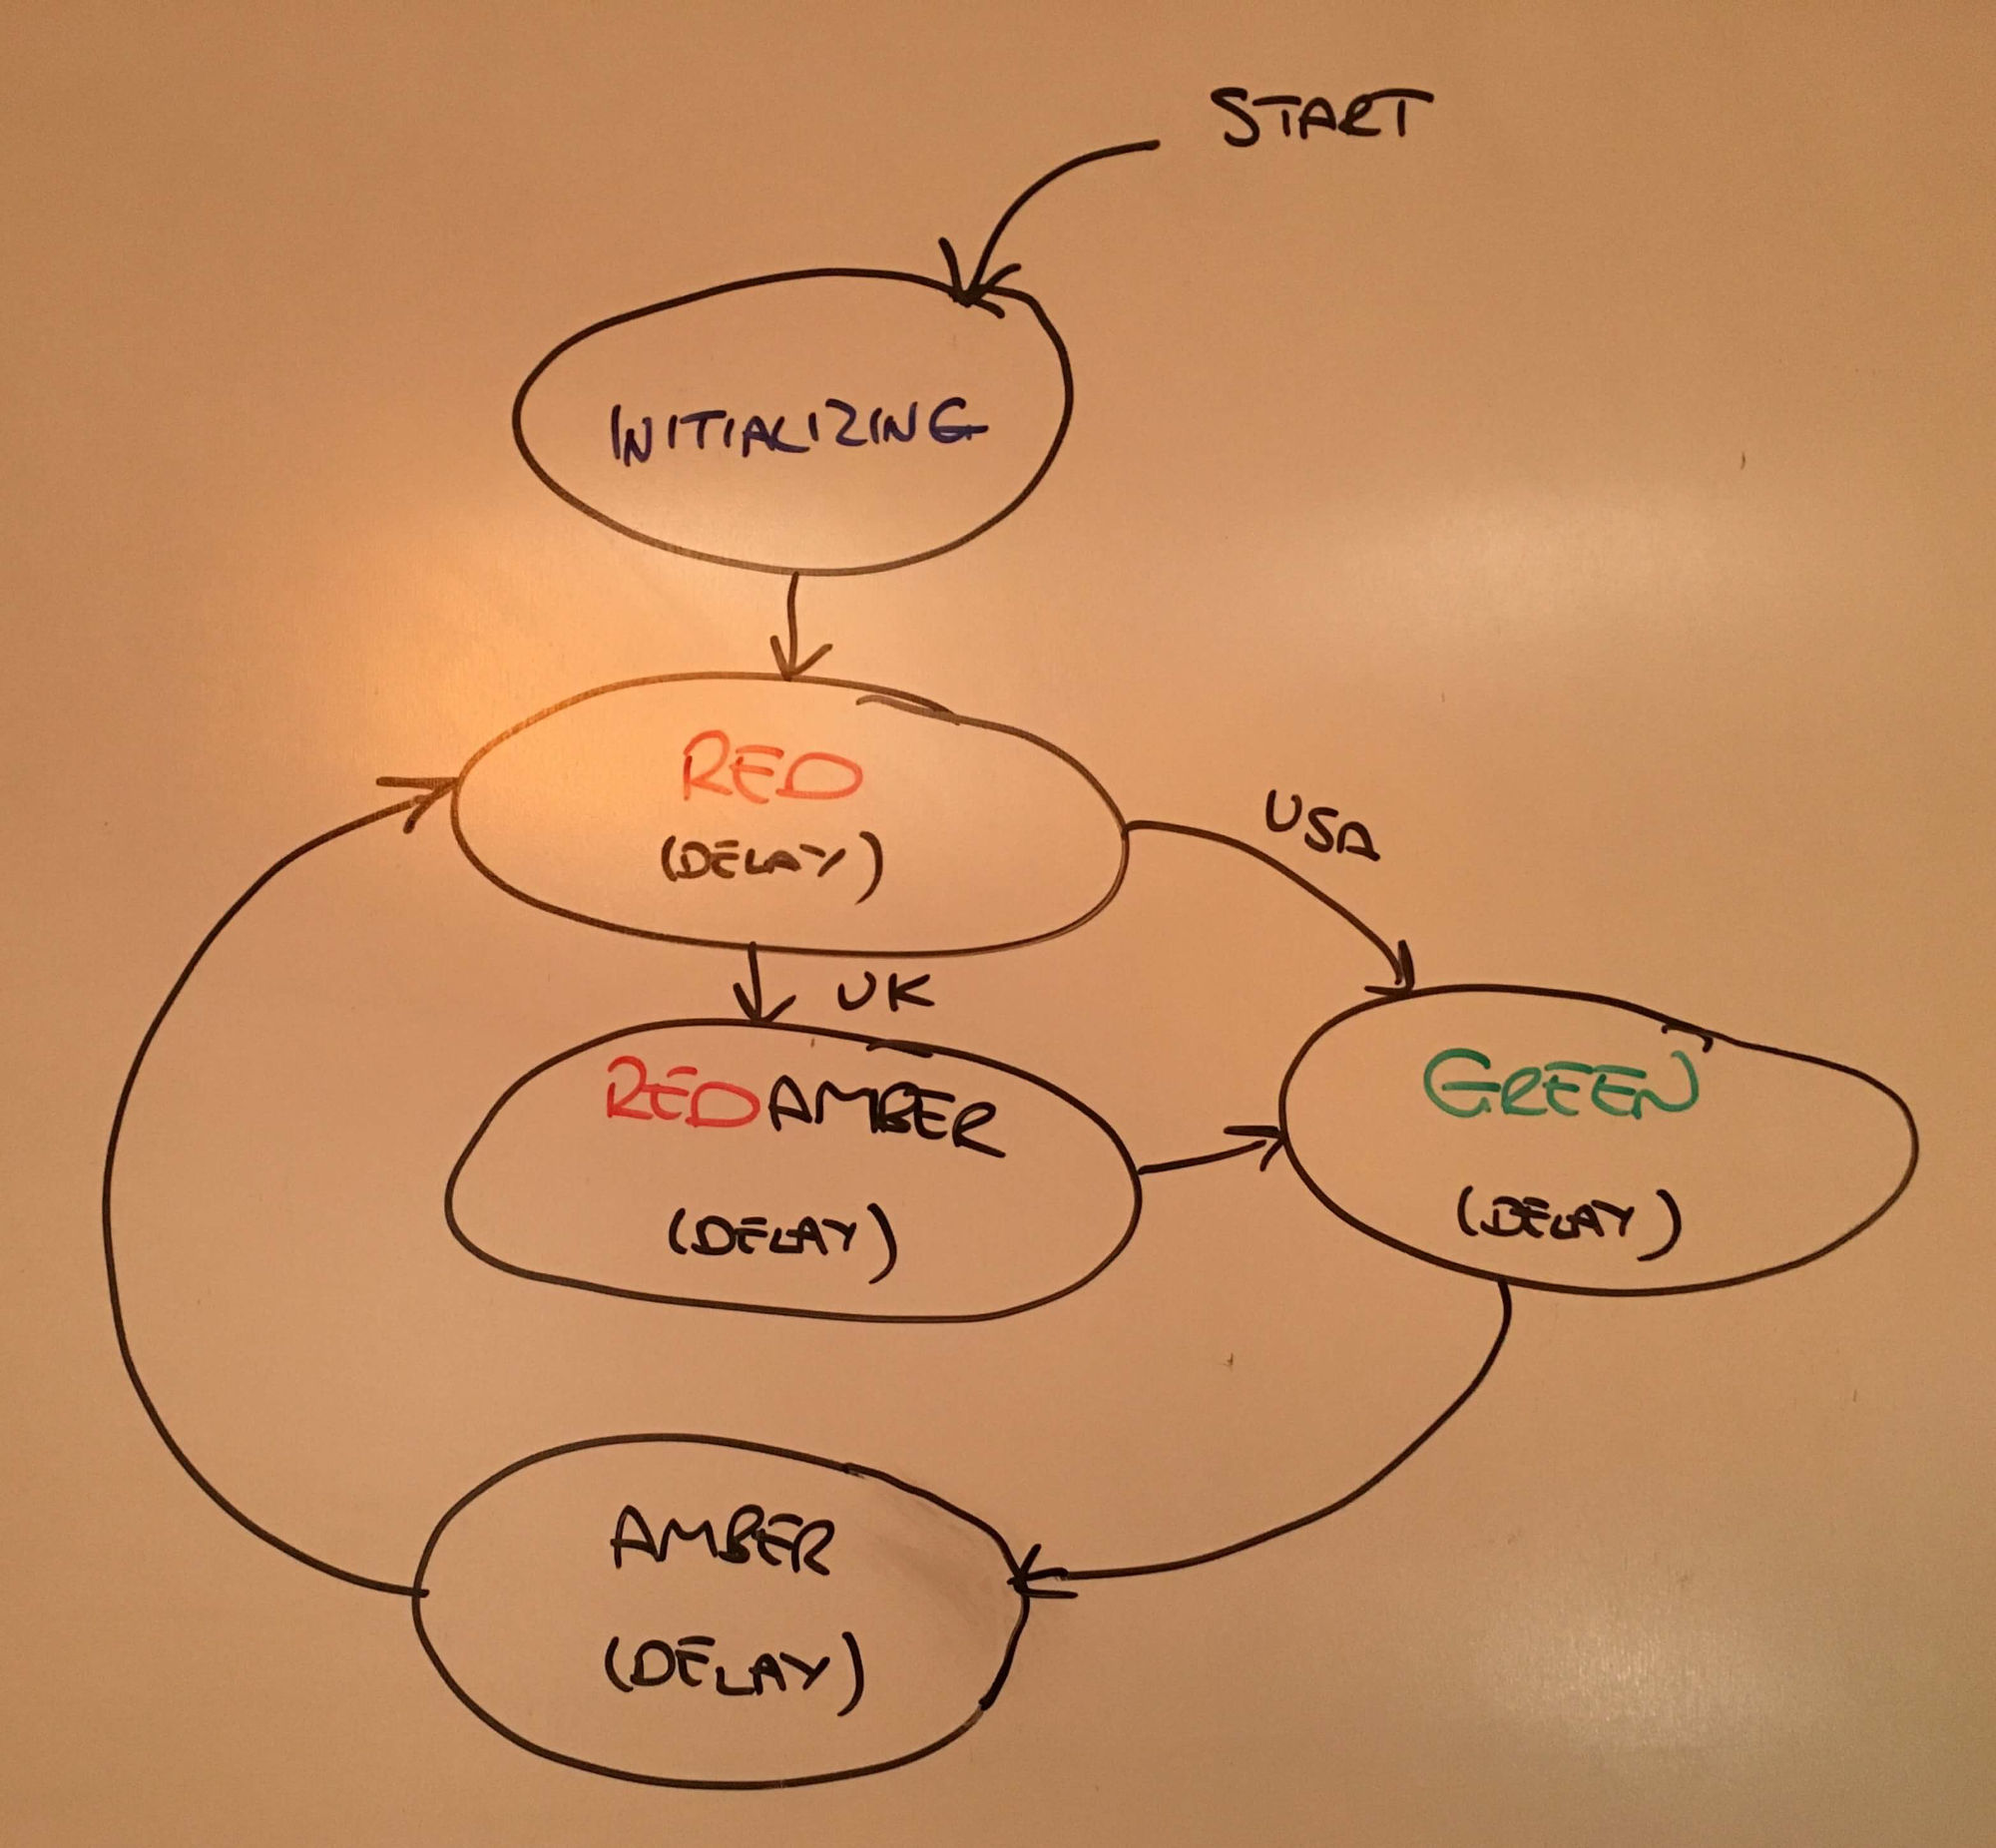 START
INITIALIZING
RED
(DELAY)
USA
UK
REDAMBER
(DELAY)
GREEN
(DELAY)
AMBER
(DELAY)